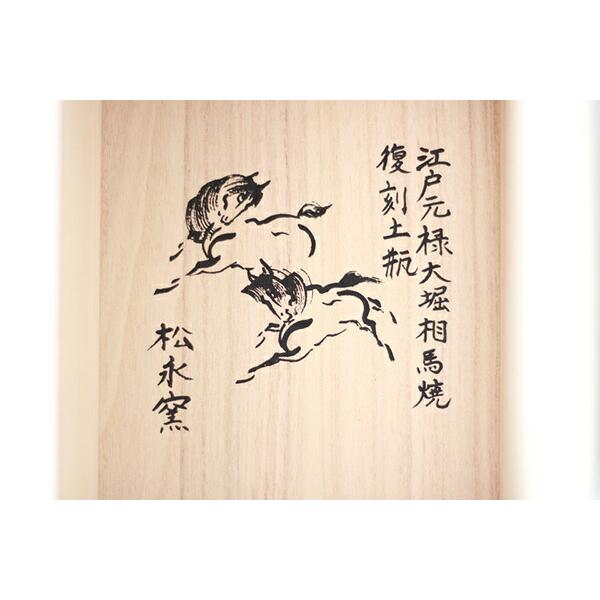 江戸元禄大堀相馬燒
復刻土瓶
松永窯